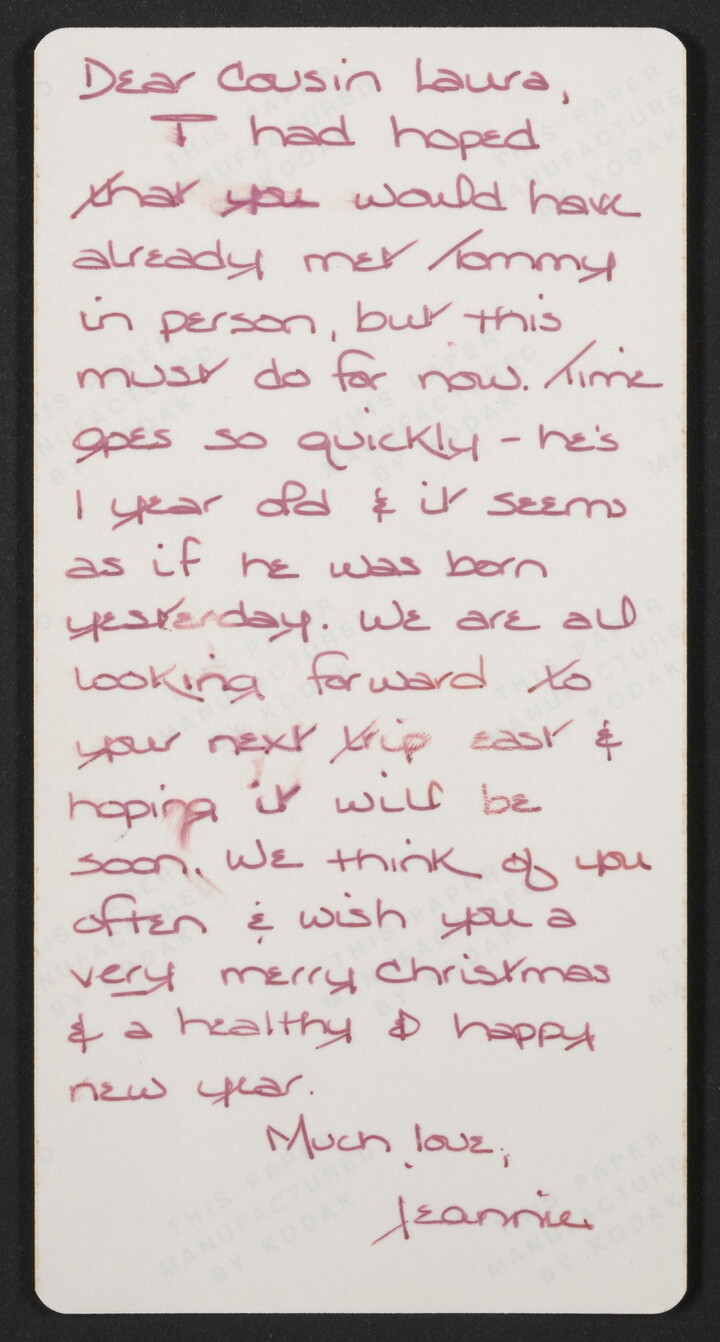 Dear Cousin Laura,
I had hoped
that you would have
already met Tommy
in person, but this
must do for now. Time
goes so quickly - he's
1 year old & it seems
as if he was born
yesterday. We are all
looking forward to
your next trip east &
hoping it will be
soon. We think of you
often & wish you a
very merry Christmas
& a healthy & happy
new year.
Much love,
Jeannie
THIS PAPER
MANUFACTURED
BY KODAK